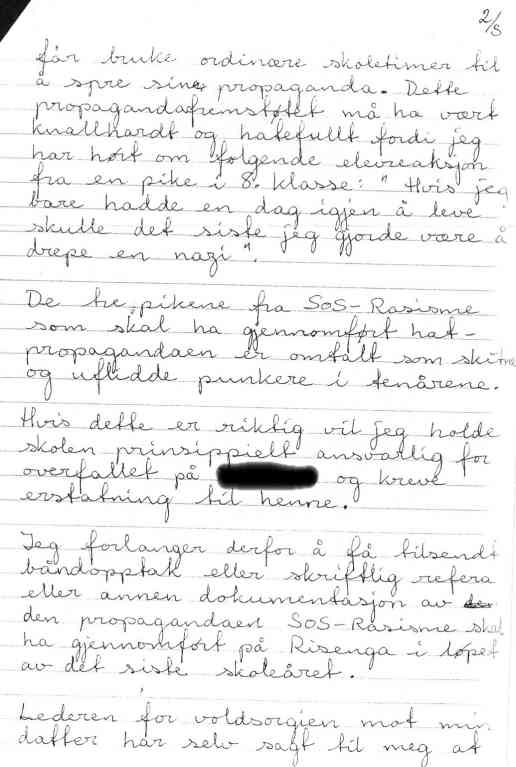 2/3
får bruke ordinære skoletimer til
å spre sine propaganda. Dette
propagandafremstøtet må ha vært
knallhardt og hatefullt fordi jeg
har hørt om følgende elevreaksjon
fra en pike i 8. klasse: "Hvis jeg
bare hadde en dag igjen å leve
skulle det siste jeg gjorde være å
drepe en nazi".
De tre pikene fra SOS-Rasisme
som skal ha gjennomført hat-
propagandaen er omtalt som skitne
og uflidde punkere i tenårene.
Hvis dette er riktig vil jeg holde
skolen prinsippielt ansvarlig for
overfallet på og kreve
erstatning til henne.
Jeg forlanger derfor å få tilsendt
båndopptak eller skriftlig refera
eller annen dokumentasjon av
den propagandaen SOS-Rasisme skal
ha gjennomført på Risenga i løpet
av det siste skoleåret.
Lederen for voldsorgien mot min
datter har selv sagt til meg at